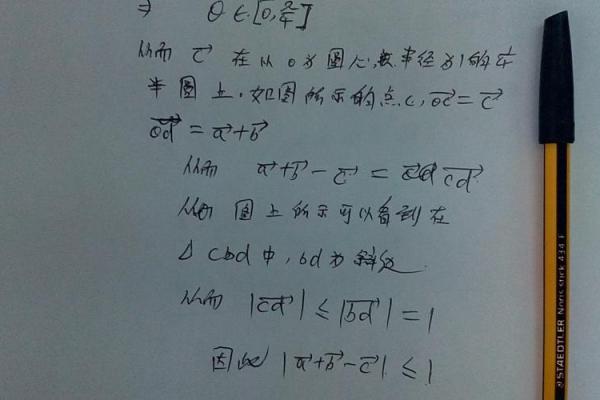 ⇒ θ∈[0, π/4]
从而 c⃗ 在以 0 为圆心, 半径为1的
半圆上. 如图所示的点c, oc⃗ = c⃗
od⃗ = a⃗+b⃗
从而 a⃗+b⃗-c⃗ = cd⃗.
从而 图上所示可以看到在
△ cbd 中, bd为斜边.
从而 |cd⃗| ≤ |bd⃗| = 1
因此 |a⃗+b⃗-c⃗| ≤ 1
STAEDTLER Noris stick 434 F